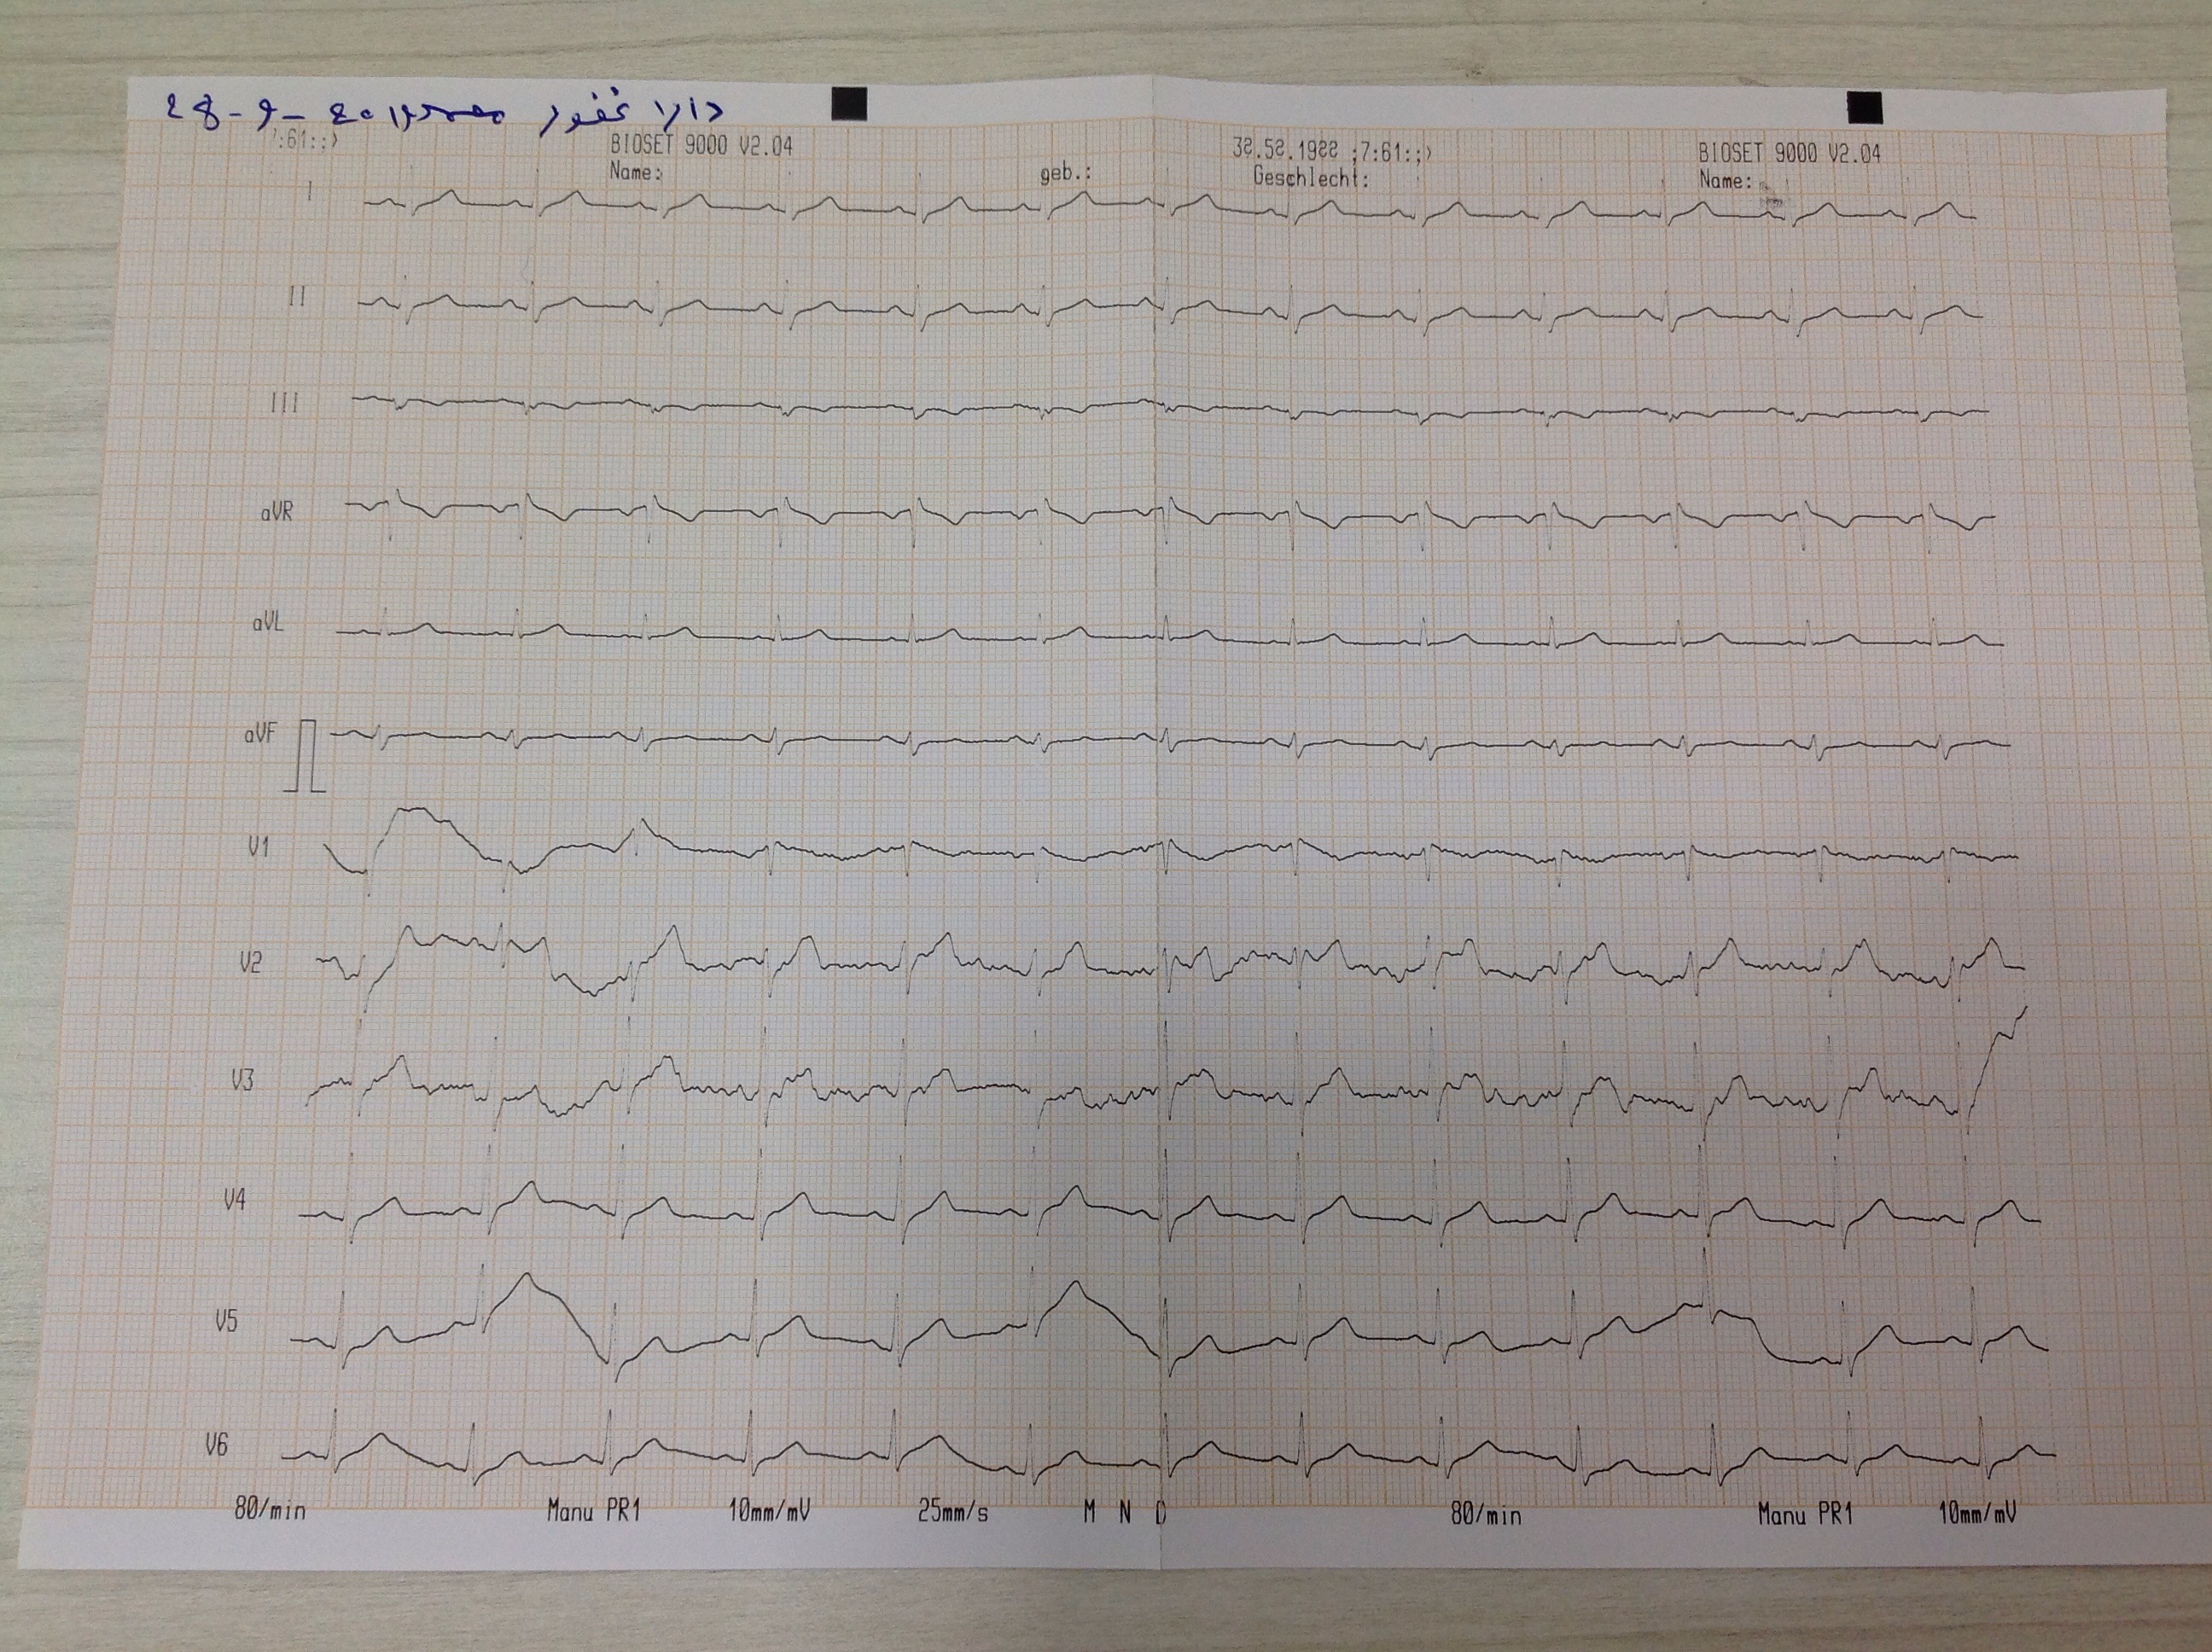 دارا غفور
BIOSET 9000 V2.04
38.58.1988 ;7:61:;>
BIOSET 9000 V2.04
Name:
geb.:
Geschlecht:
Name:
I
II
III
aVR
aVL
aVF
V1
V2
V3
V4
V5
V6
80/min Manu PR1 10mm/mV 25mm/s M N D 80/min Manu PR1 10mm/mV